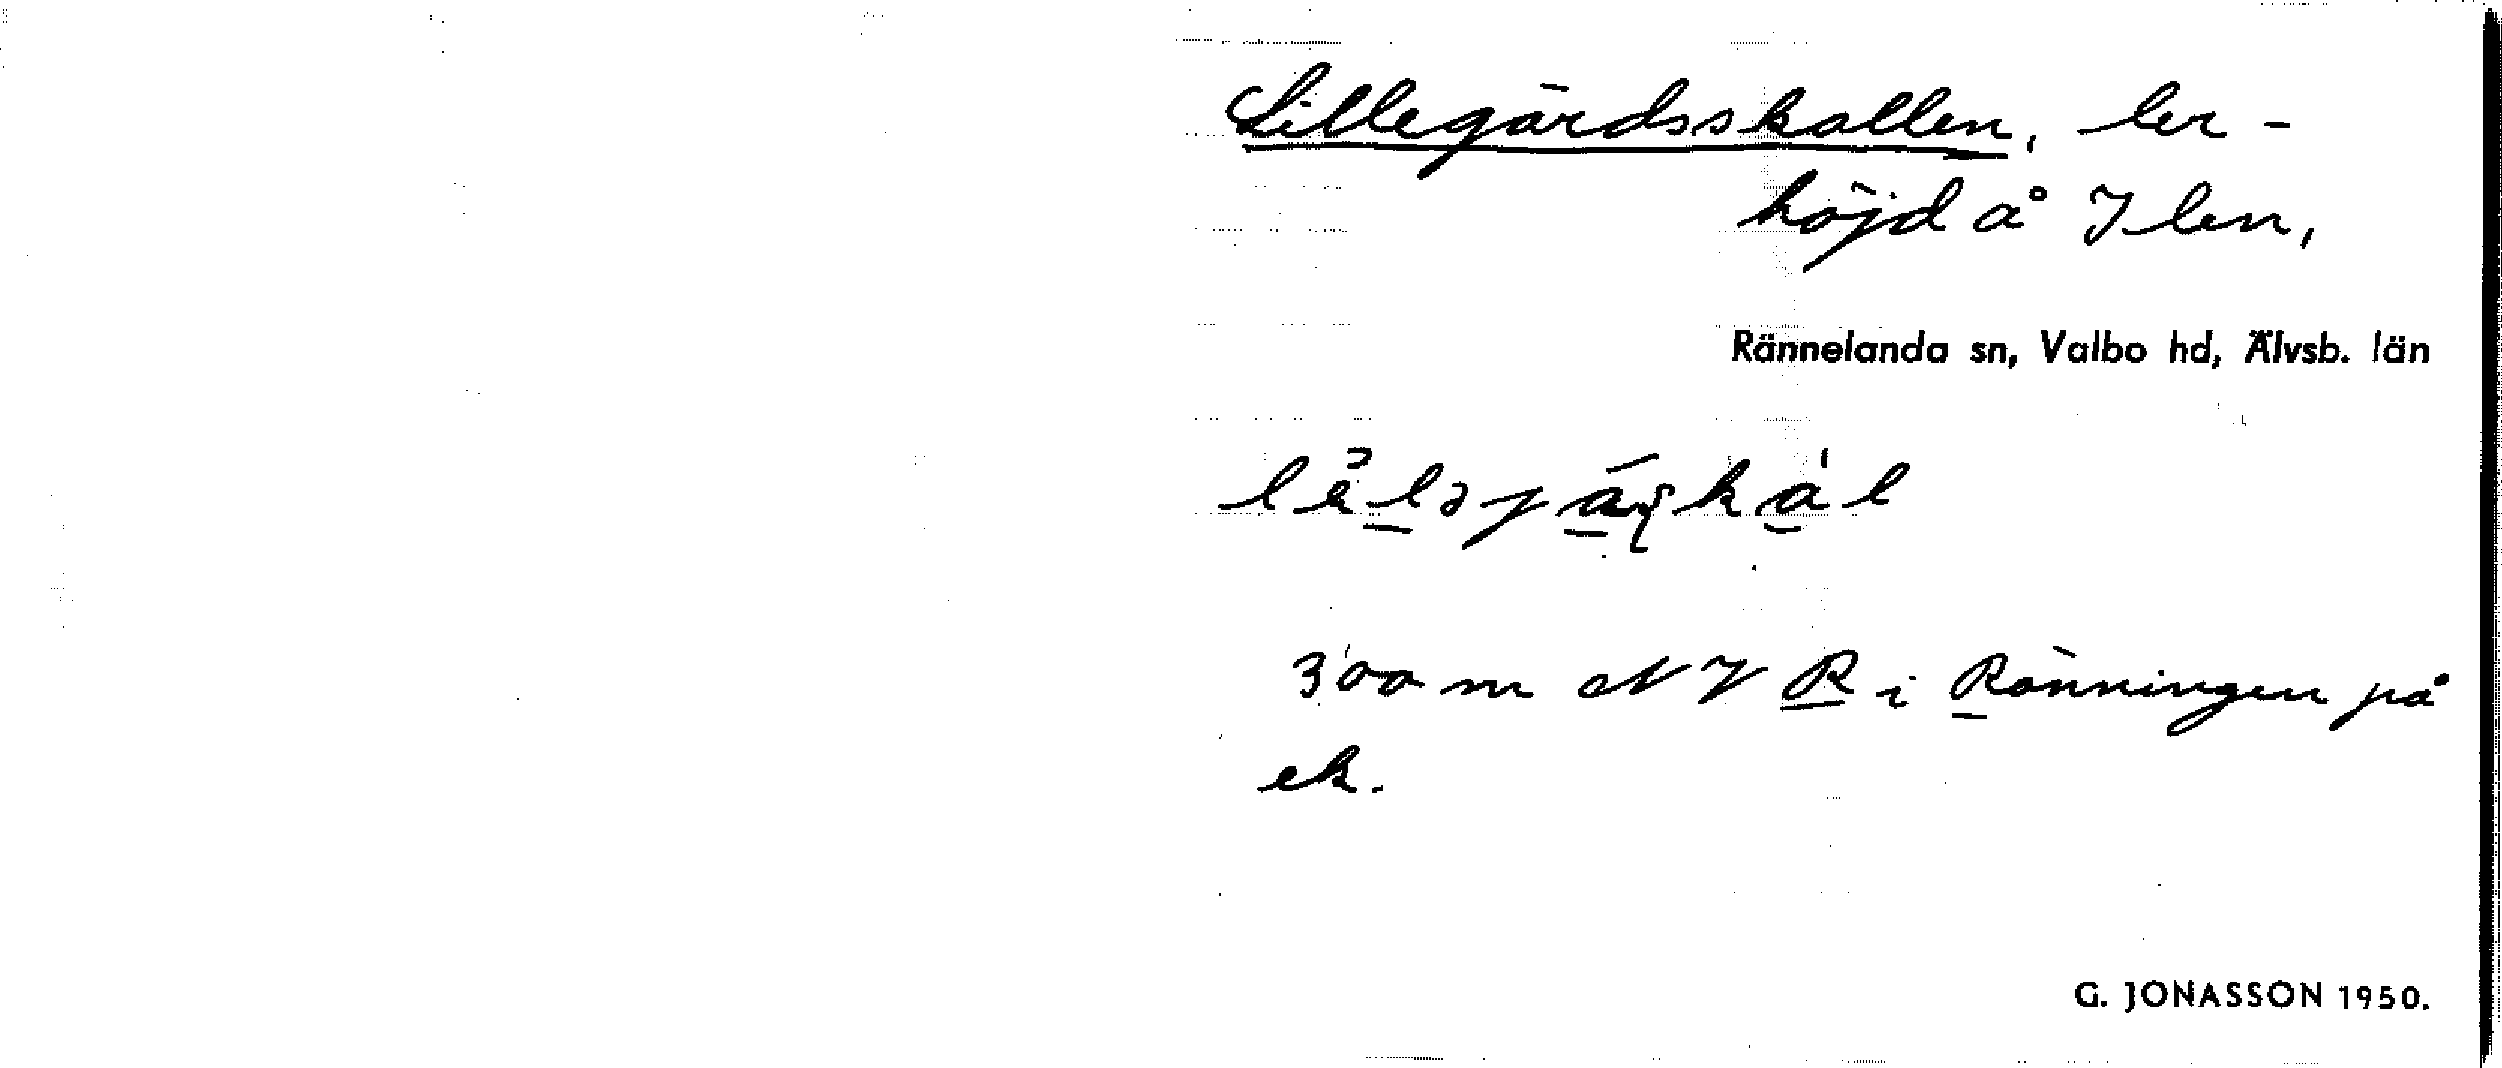 Lillegärdsskallen, ler-
höjd å Ilen,
Rännelanda sn, Valbo hd, Älvsb. län
300 m NV R i Rönningen på
ek.
G. JONASSON 1950.